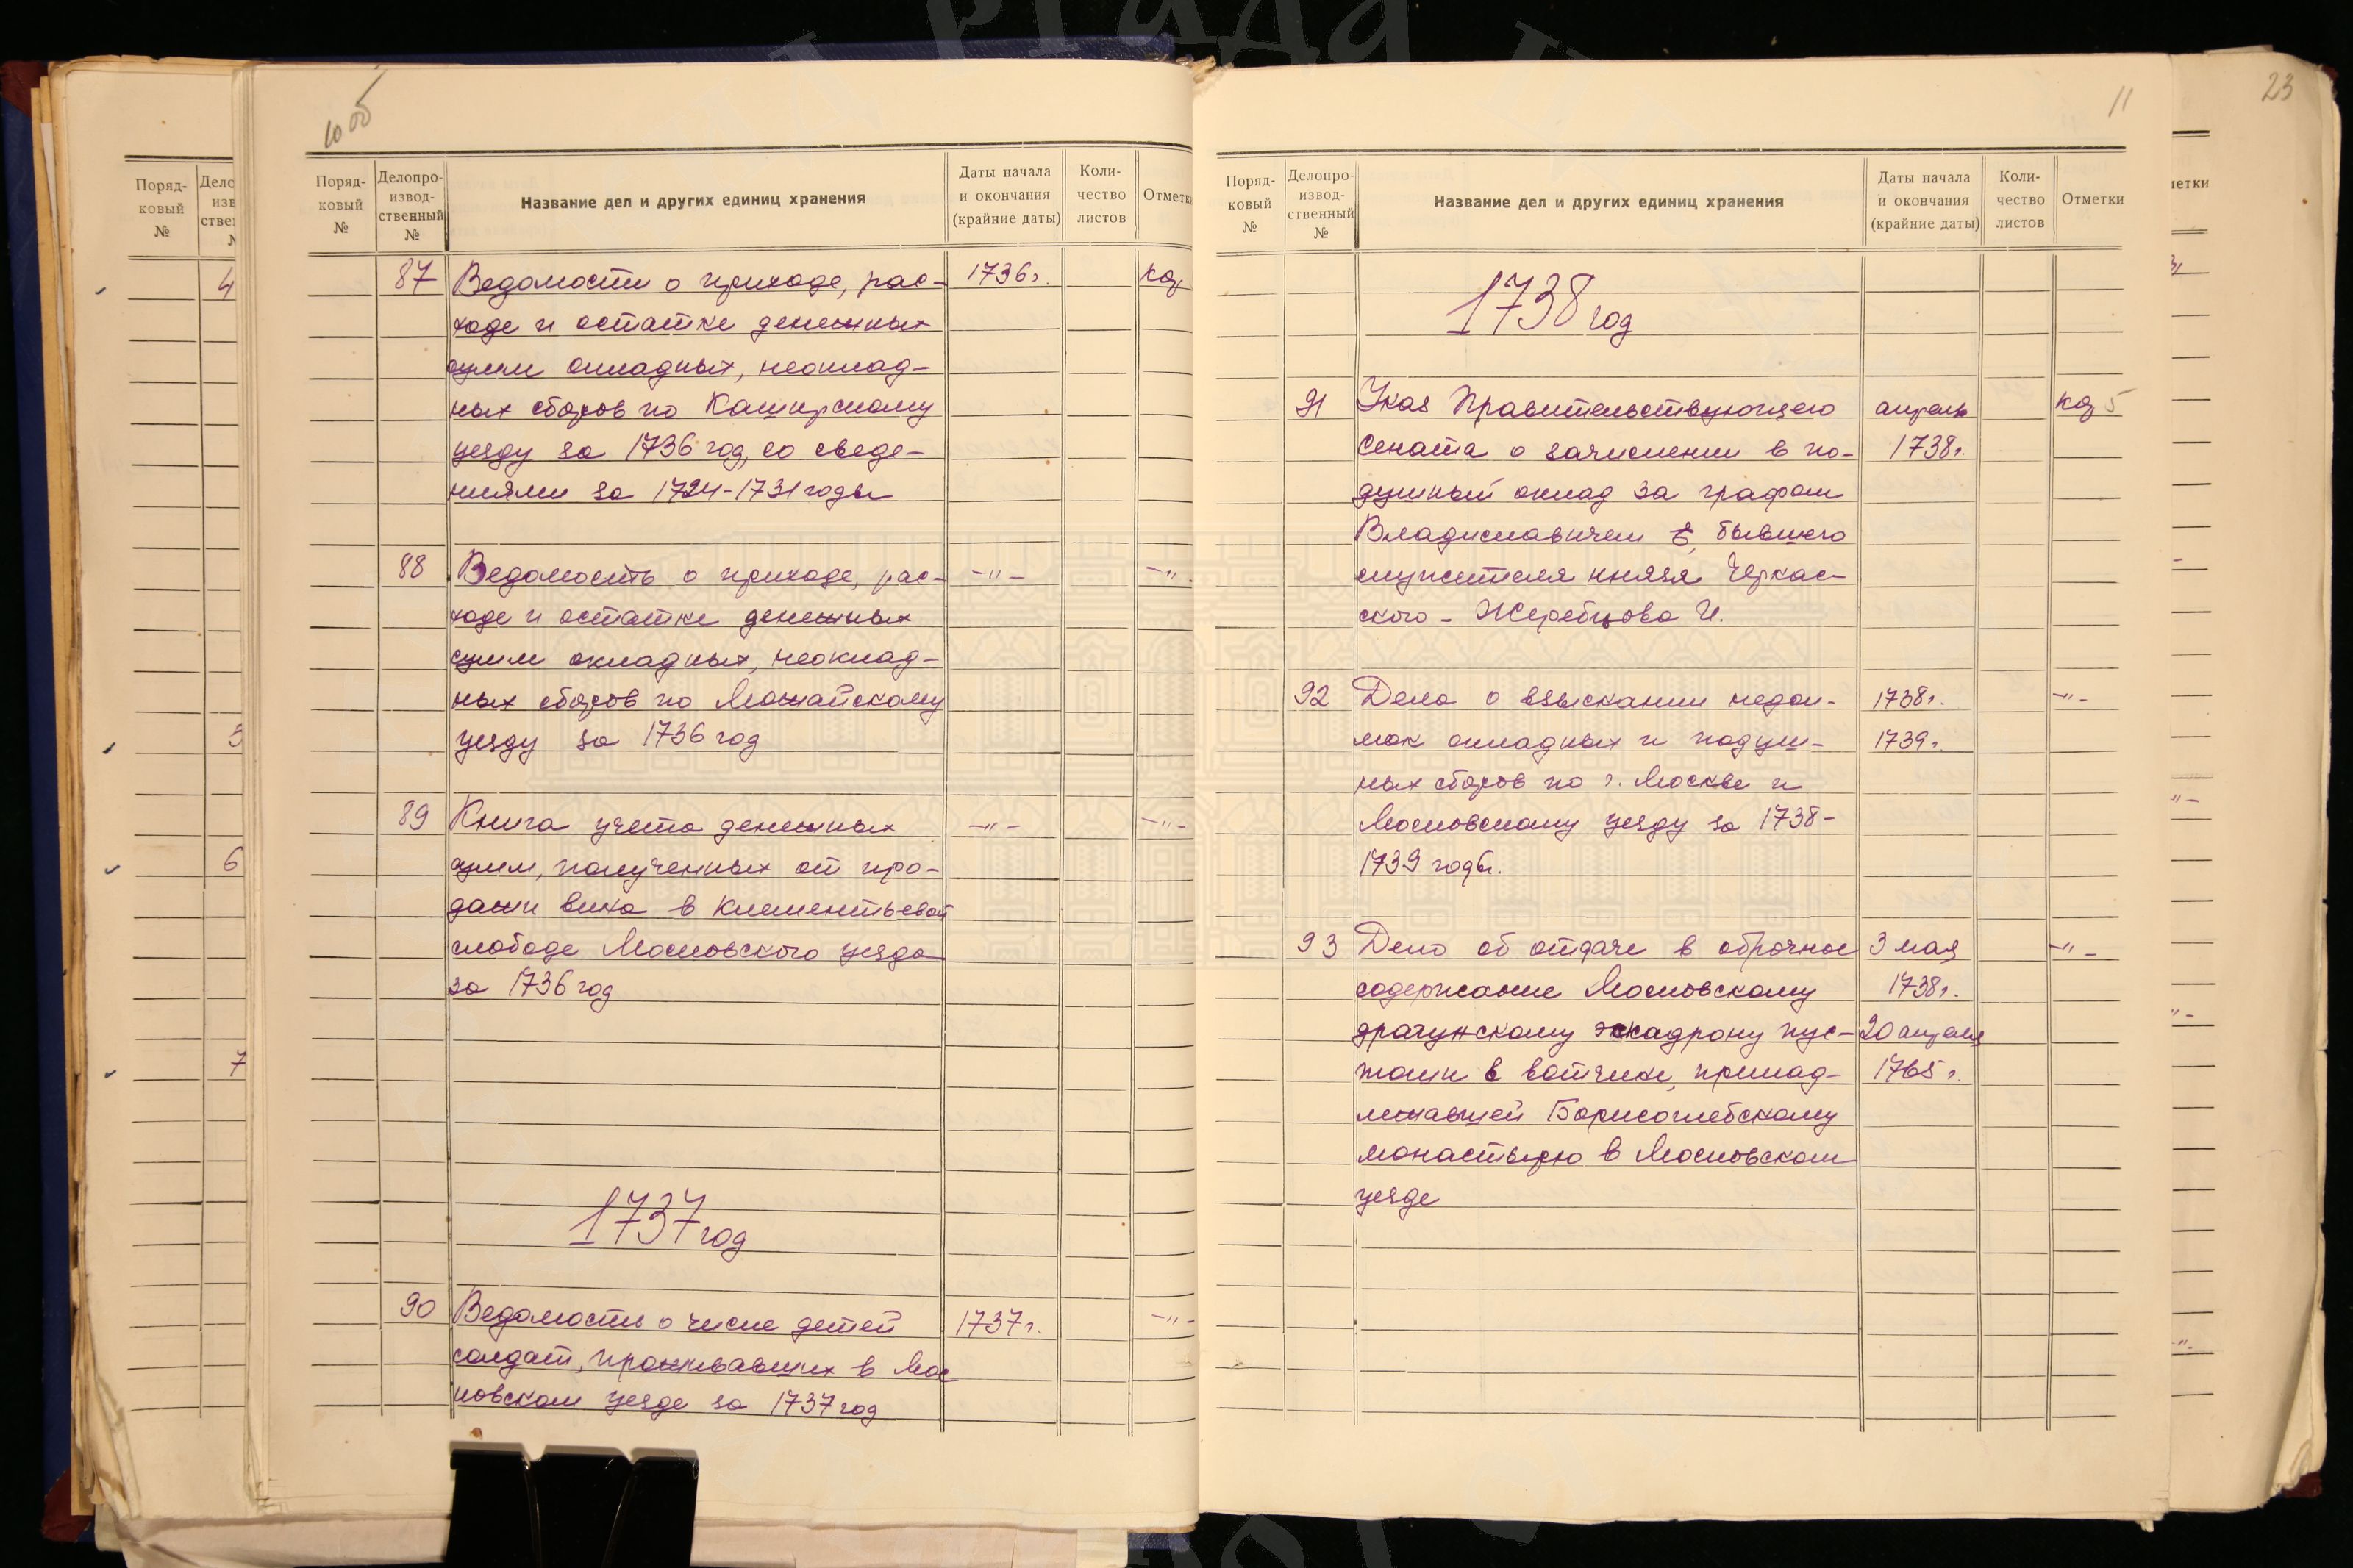 10 об
Поряд-
ковый
№
Делопро-
извод-
ственный
№
Название дел и других единиц хранения
Даты начала
и окончания
(крайние даты)
Коли-
чество
листов
Отметки
87 Ведомости о приходе, рас- 1736 г.
ходе и остатке денежных
сумм окладных, неоклад-
ных сборов по Каширскому
уезду за 1736 год, со сведе-
ниями за 1724-1731 годы
88 Ведомость о приходе, рас- -"- -"-
ходе и остатке денежных
сумм окладных, неоклад-
ных сборов по Можайскому
уезду за 1736 год
89 Книга учета денежных -"- -"-
сумм, полученных от про-
дажи вина в Клементьевой
слободе Московского уезда
за 1736 год
1737 год
90 Ведомость о числе детей 1737 г. -"-
солдат, проживавших в Мос
ковском уезде за 1737 год
11
Поряд-
ковый
№
Делопро-
извод-
ственный
№
Название дел и других единиц хранения
Даты начала
и окончания
(крайние даты)
Коли-
чество
листов
Отметки
1738 год
91 Указ Правительствующего апрель 5
Сената о зачислении в по- 1738 г.
душный оклад за графом
Владиславичем бывшего
служителя князя Черкас-
ского - Жеребцова И.
92 Дела о взыскании недои- 1738 г. -"-
мок окладных и подуш- 1739 г.
ных сборов по г. Москве и
Московскому уезду за 1738-
1739 годы.
93 Дело об отдаче в оброчное 3 мая -"-
содержание Московскому 1738 г.
драгунскому эскадрону пус- 20 апреля
тоши в вотчине, принад- 1765 г.
лежавшей Борисоглебскому
монастырю в Московском
уезде
23